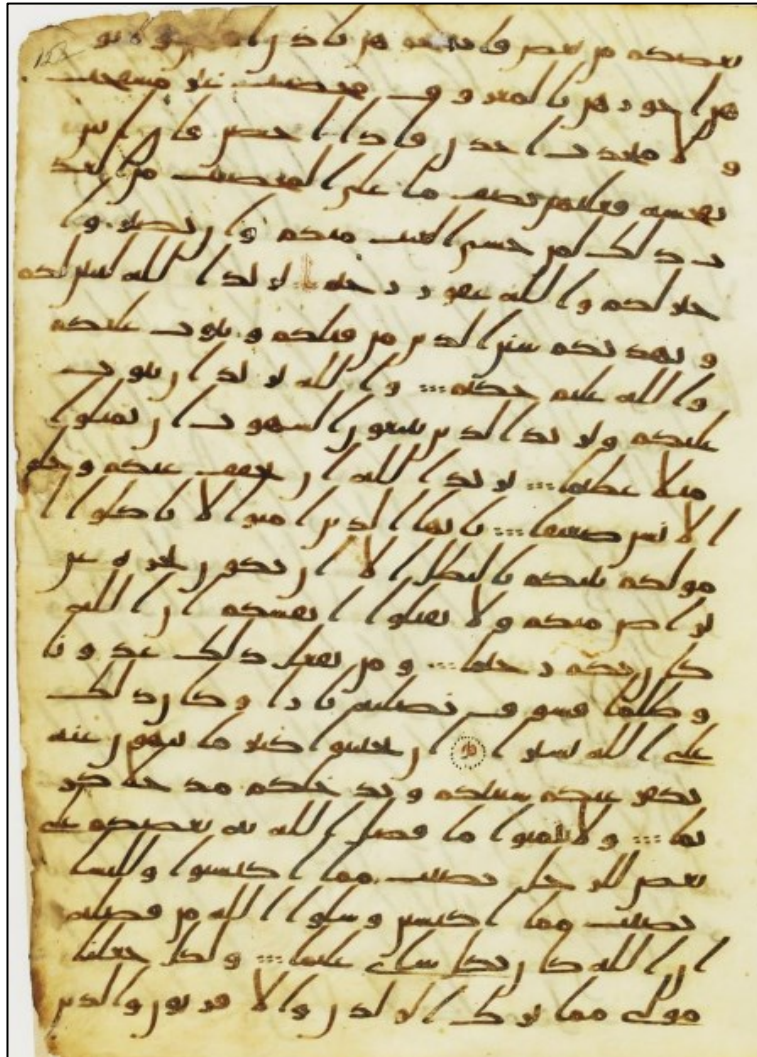 بعضكم من بعض فانكحوهن باذن اهلهن واتو
هن اجورهن بالمعروف محصنت غير مسفحت
ولا متخذت اخدن فاذا احصن فان اتين
بفحشه فعليهن نصف ما على المحصنت من العذ
ب ذلك لمن خشى العنت منكم وان تصبروا
خير لكم والله غفور رحيم يريد الله ليبين لكم
و يهديكم سنن الذين من قبلكم ويتوب عليكم
والله عليم حكيم والله يريد ان يتوب
عليكم ويريد الذين يتبعون الشهوت ان تميلوا
ميلا عظيما يريد الله ان يخفف عنكم وخلق
الانسن ضعيفا يايها الذين امنوا لا تاكلوا ا
مولكم بينكم بالبطل الا ان تكون تجره عن
تراض منكم ولا تقتلوا انفسكم ان الله
كان بكم رحيما ومن يفعل ذلك عدونا
وظلما فسوف نصليه نارا وكان ذلك
على الله يسيرا ان تجتنبوا كبير ما تنهون عنه
نكفر عنكم سيتكم وندخلكم مدخلا كر
يما ولا تتمنوا ما فضل الله به بعضكم على
بعض للرجل نصيب مما اكتسبوا وللنسا
نصيب مما اكتسبن وسلوا الله من فضله
ان الله كان بكل شاى عليما ولكل جعلنا
مولى مما ترك الولدن والاقربون والذين